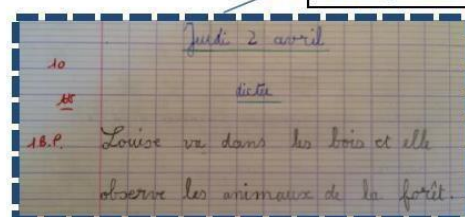 Jeudi 2 avril
10
dictée
1.B.P. Louise va dans les bois et elle
observe les animaux de la forêt.